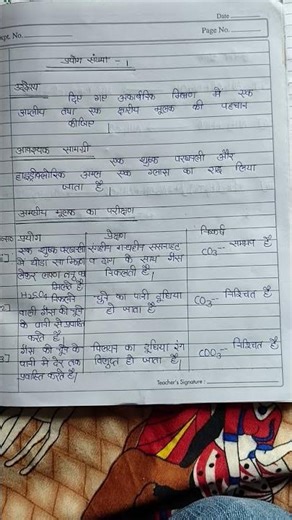 Date
Expt. No.
Page No.
प्रयोग संख्या - 1
उद्देश्य
दिए गए अकार्बनिक मिश्रण में एक
अम्लीय तथा एक क्षारीय मूलक की पहचान
कीजिए
आवश्यक सामग्री
एक शुष्क परखनली और
हाइड्रोक्लोरिक अम्ल एक ग्लास का राड लिया
जाता है
अम्लीय मूलक का परीक्षण
प्रयोग प्रेक्षण निष्कर्ष
एक शुष्क परखनली रंगहीन गंधहीन CO3-- सम्भव है
में थोड़ा सा मिश्रण के साथ गैस
लेकर निकलती है।
मिलाते हैं
H2SO4 चूने का पानी दूधिया CO3-- निश्चित है
वाली गैस को चूने हो जाता है
के पानी में प्रवाहित
करते हैं।
3] गैस को चूने के विलयन का दूधिया रंग CO3-- निश्चित है
पानी में देर तक विलुप्त हो जाता है।
प्रवाहित करते हैं।
Teacher's Signature